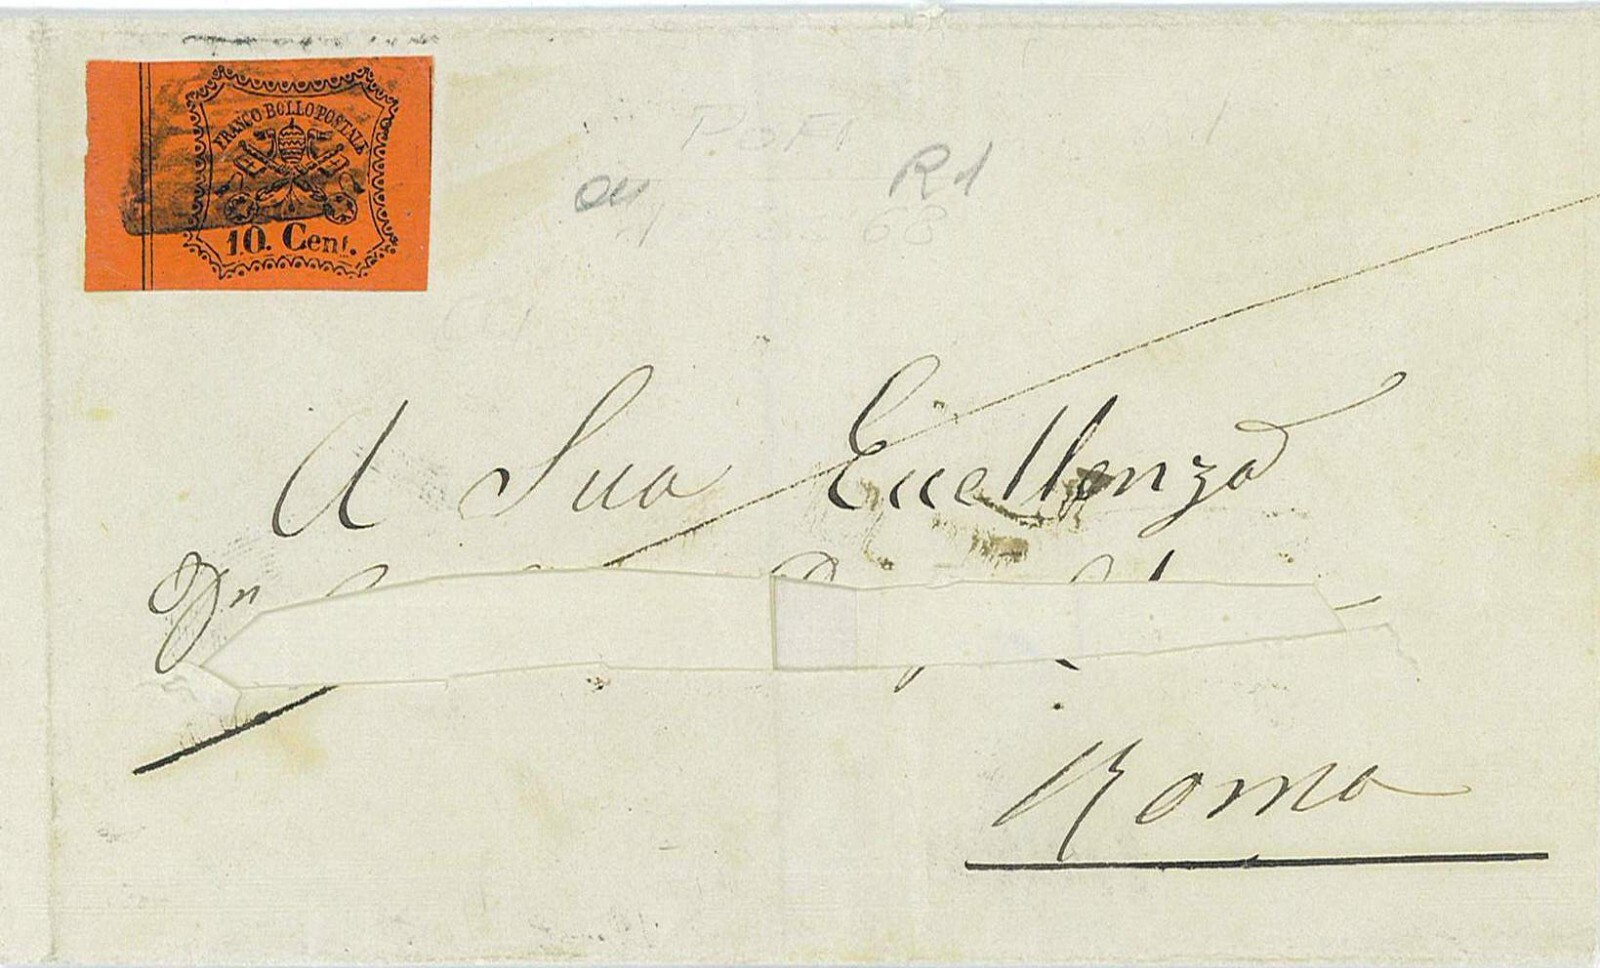 FRANCO BOLLO POSTALE
10. Cent.
POFI
R1
68
A Sua Eccellenza
Dn
Roma